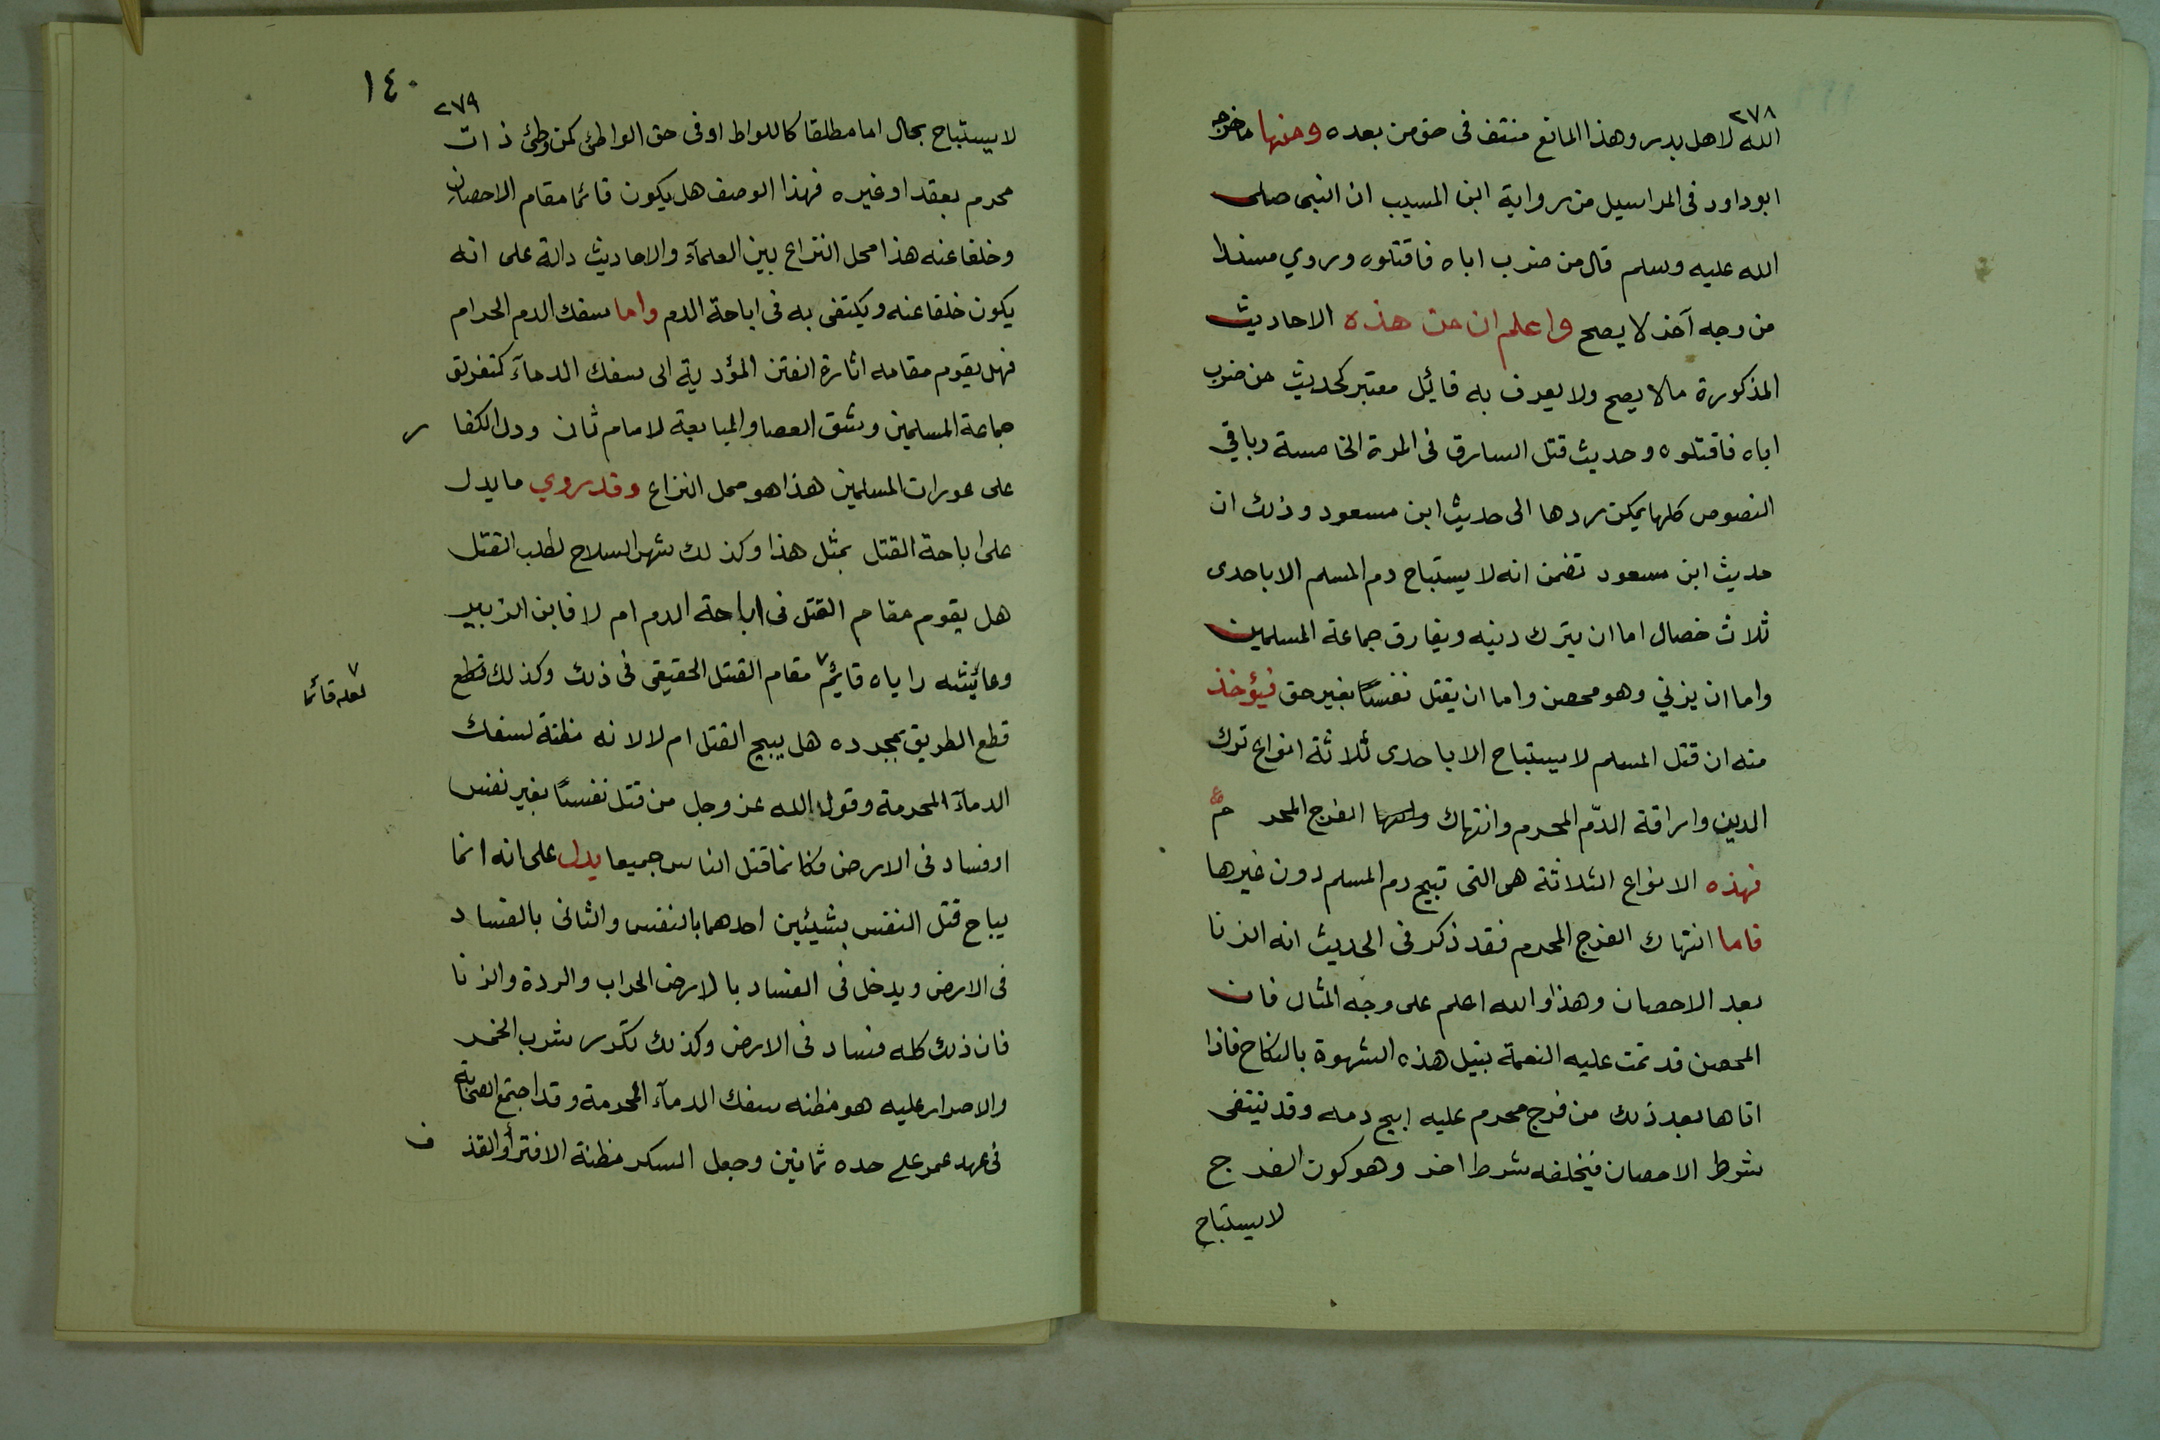 ٢٧٨
الله لاهل بدر وهذا المانع منتف فى حق من بعده ومنها ما خرجه
ابوداود فى المراسيل من رواية ابن المسيب ان النبى صلى
الله عليه وسلم قال من ضرب اباه فاقتلوه وروي مسندا
من وجه آخر لا يصح واعلم ان من هذه الاحاديث
المذكورة مالا يصح ولا يعرف به قائل معتبر كحديث من ضرب
اباه فاقتلوه وحديث قتل السارق فى المرة الخامسة وباقي
النصوص كلها يمكن ردها الى حديث ابن مسعود وذلك ان
حديث ابن مسعود تضمن انه لا يستباح دم المسلم الا باحدى
ثلاث خصال اما ان يترك دينه ويفارق جماعة المسلمين
واما ان يزني وهو محصن واما ان يقتل نفسًا بغير حق فيؤخذ
منه ان قتل المسلم لا يستباح الا باحدى ثلاثة انواع ترك
الدين واراقة الدّم المحرم وانتهاك الفرج المحرم
فهذه الانواع الثلاثة هى التى تبيح دم المسلم دون غيرها
فاما انتهاك الفرج المحرم فقد ذكر فى الحديث انه الزنا
بعد الاحصان وهذا والله اعلم على وجه المثال فان
المحصن قد تمت عليه النعمة بنيل هذه الشهوة بالنكاح فاذا
اتاها بعد ذلك من فرج محرم عليه ابيح دمه وقد ينتفى
شرط الاحصان فيخلفه شرط اخر وهو كون الفرج
لا يستباح
١٤٠
٢٧٩
لا يستباح بحال اما مطلقا كاللواط او فى حق الواطئ كمن وطئ ذات
محرم بعقد او غيره فهذا الوصف هل يكون قائما مقام الاحصان
وخلفا عنه هذا محل النزاع بين العلمآء والاحاديث دالة على انه
يكون خلفا عنه ويكتفى به فى اباحة الدم واما سفك الدم الحرام
فهل يقوم مقامه اثارة الفتن المؤدية الى سفك الدمآء كتفريق
جماعة المسلمين وشق العصا والمبايعة لامام ثان ودل الكفار
على عورات المسلمين هذا هو محل النزاع وقد روي ما يدل
على اباحة القتل بمثل هذا وكذلك شهر السلاح لطلب القتل
هل يقوم مقام القتل فى اباحة الدم ام لا فابن الزبير
وعائشه راياه قايم٧ مقام القتل الحقيقى فى ذلك وكذلك قطع
٧ لعله قائما
قطع الطريق بمجرده هل يبيح القتل ام لا لانه مظنة لسفك
الدمآء المحرمة وقول الله عز وجل من قتل نفسًا بغير نفس
او فساد فى الارض فكانما قتل الناس جميعا يدل على انه انما
يباح قتل النفس بشيئين احدهما بالنفس والثانى بالفساد
فى الارض ويدخل فى الفساد بالارض الحراب والردة والزنا
فان ذلك كله فساد فى الارض وكذلك تكرر شرب الخمر
والاصرار عليه هو مظنه سفك الدمآء المحرمة وقد اجتمع الصحابة
فى عهد عمر على حده ثمانين وجعل السكر مظنة الافترأ والقذف